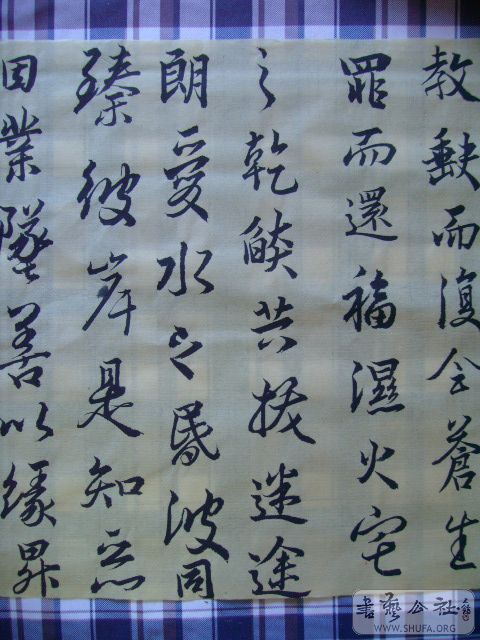 教缺而復全蒼生
罪而還福濕火宅
之乾焰共拔迷途
朗愛水之昏波同
臻彼岸是知惡
因業墜善以緣昇
書藝公社
WWW.SHUFA.ORG